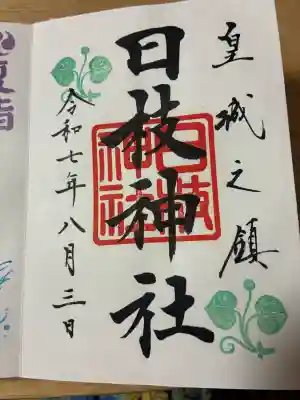 皇城之鎮
日枝神社
日枝
神社
令和七年八月三日
夏詣